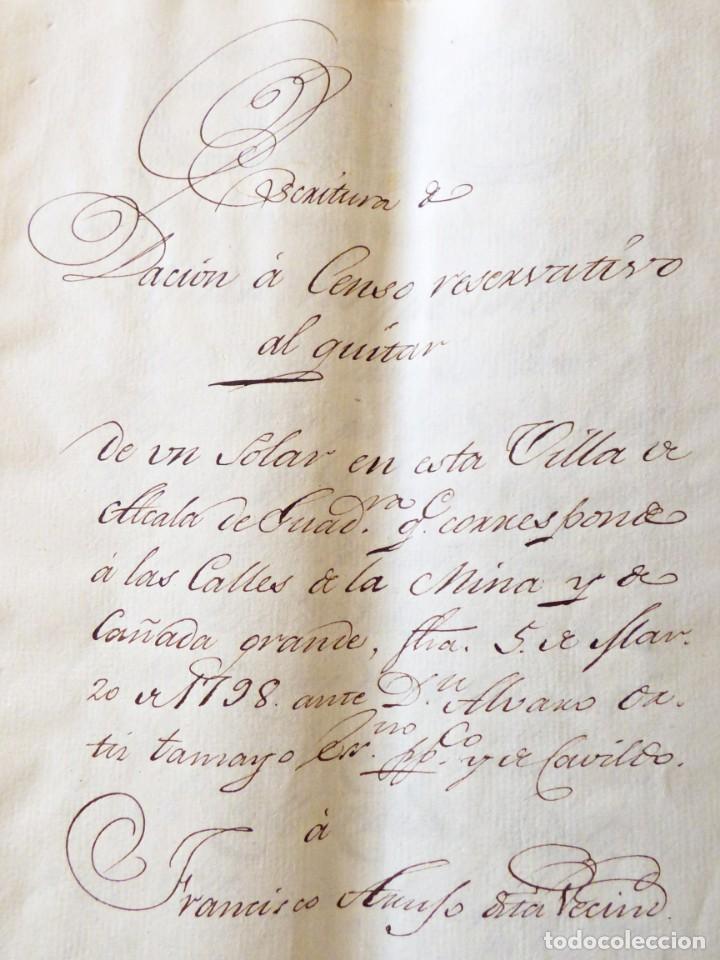 Escritura de
Dacion à Censo reservativo
al quitar
de vn Solar en esta Villa de
Alcala de Guad.ra q.e corresponde
à las Calles de la Mina y de
Cañada grande, fha. 5. de Mar-
zo de 1798. ante D.n Alvaro Or-
tiz tamayo Ess.no pp.co y de Cavildo.
à
Francisco desta Vecind.
todocoleccion
todocoleccion.net